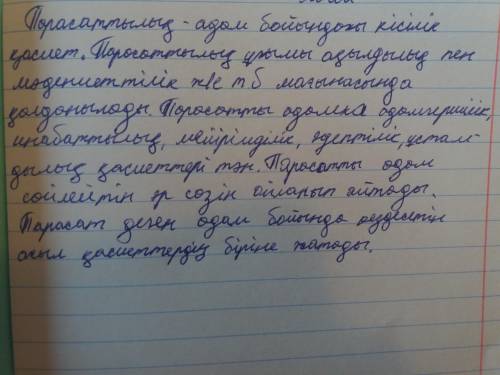 Парасаттылық - адам бойындағы кісілік
қасиет. Парасаттылық ұғымы ақылдылық пен
мәдениеттілік ж/е т.б мағынасында
қолданылады. Парасатты адамға адамгершілік,
инабаттылық, мейірімділік, әдептілік, ұстам-
дылық қасиеттері тән. Парасатты адам
сөйлейтін әр сөзін ойланып айтады.
Парасат деген адам бойында кездесетін
асыл қасиеттердің біріне жатады.